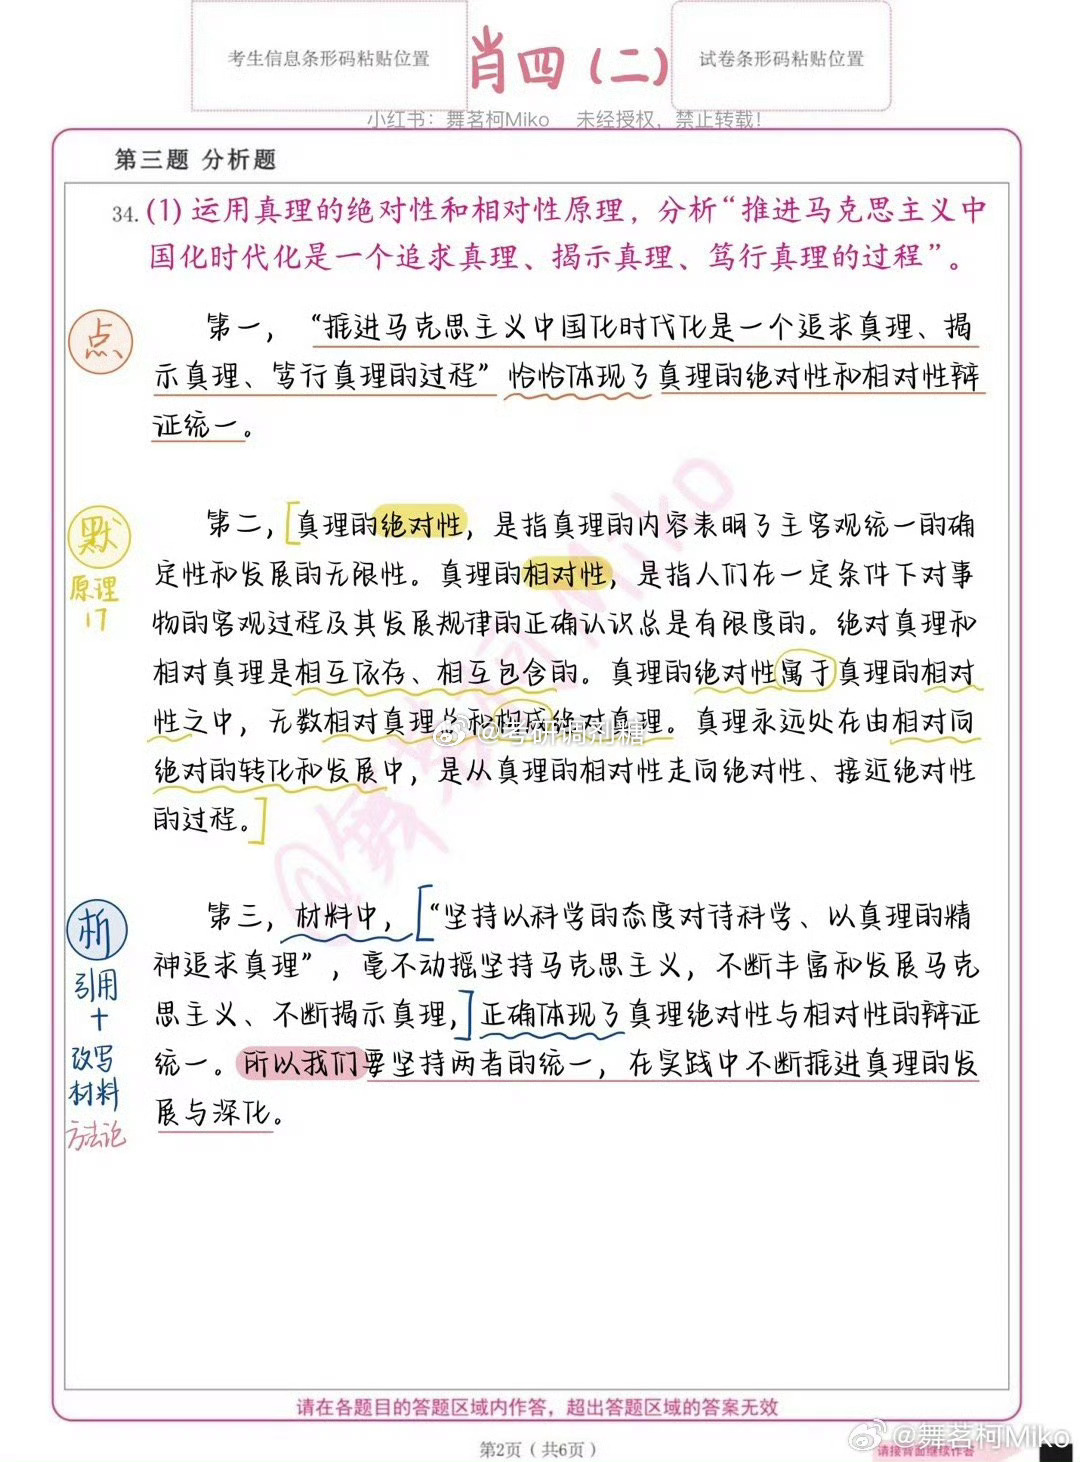 考生信息条形码粘贴位置
肖四(二)
试卷条形码粘贴位置
小红书：舞茗柯Miko 未经授权，禁止转载！
第三题 分析题
34.(1)运用真理的绝对性和相对性原理，分析“推进马克思主义中
国化时代化是一个追求真理、揭示真理、笃行真理的过程”。
点
第一，“推进马克思主义中国化时代化是一个追求真理、揭
示真理、笃行真理的过程”恰恰体现了真理的绝对性和相对性辩
证统一。
默
原理
17
第二，[真理的绝对性，是指真理的内容表明了主客观统一的确
定性和发展的无限性。真理的相对性，是指人们在一定条件下对事
物的客观过程及其发展规律的正确认识总是有限度的。绝对真理和
相对真理是相互依存、相互包含的。真理的绝对性寓于真理的相对
性之中，无数相对真理总和构成绝对真理。真理永远处在由相对向
绝对的转化和发展中，是从真理的相对性走向绝对性、接近绝对性
的过程。]
@考研调剂糖
@舞茗柯Miko
析
引用
+
改写
材料
方法论
第三，材料中，[“坚持以科学的态度对待科学、以真理的精
神追求真理”，毫不动摇坚持马克思主义，不断丰富和发展马克
思主义、不断揭示真理，]正确体现了真理绝对性与相对性的辩证
统一。所以我们要坚持两者的统一，在实践中不断推进真理的发
展与深化。
请在各题目的答题区域内作答，超出答题区域的答案无效
第2页（共6页）
请接背面继续作答
@舞茗柯Miko